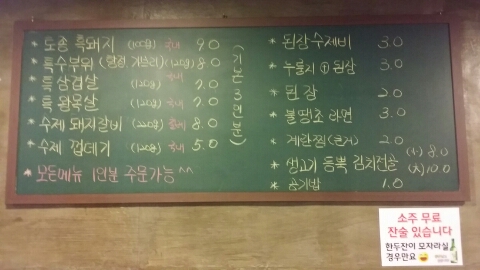 * 토종 흑돼지 (100g) 국내 9.0
* 특수부위 (120g) 8.0
* 특 삼겹살 (120g) 국내 7.0
* 특 왕목살 (120g) 국내 7.0
* 수제 돼지갈비 (220g) 8.0
* 수제 껍데기 (120g) 국내 5.0
* 모든메뉴 1인분 주문가능 ^^
(기본3인분)
* 된장수제비 3.0
* 누룽지 된장 3.0
* 된장 2.0
* 불땡초 라면 3.0
* 계란찜 2.0
* 생고기 듬뿍 김치전골 (小) 8.0 (大) 10.0
* 공기밥 1.0
소주 무료
잔술 있습니다
한두잔이 모자라실
경우만요